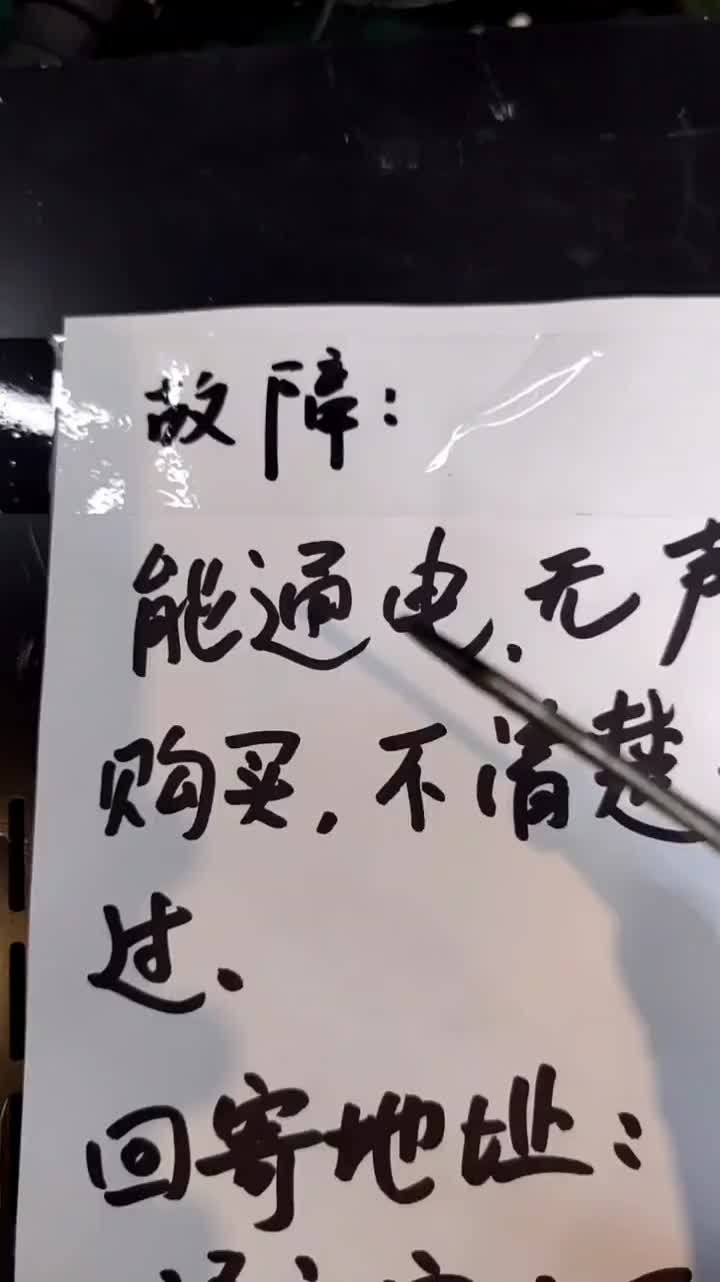 故障：
能通电.无声
购买,不清楚
过.
回寄地址：